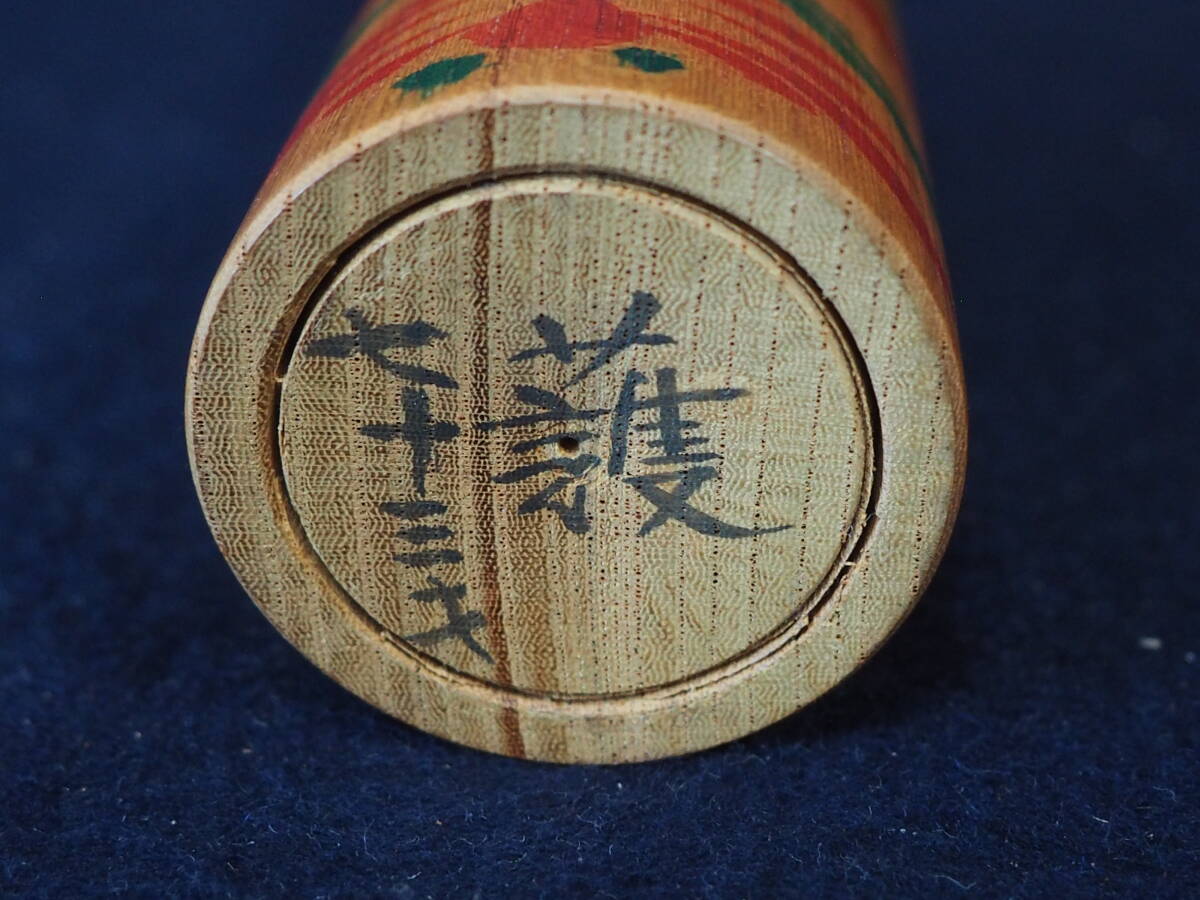 護
七十三才